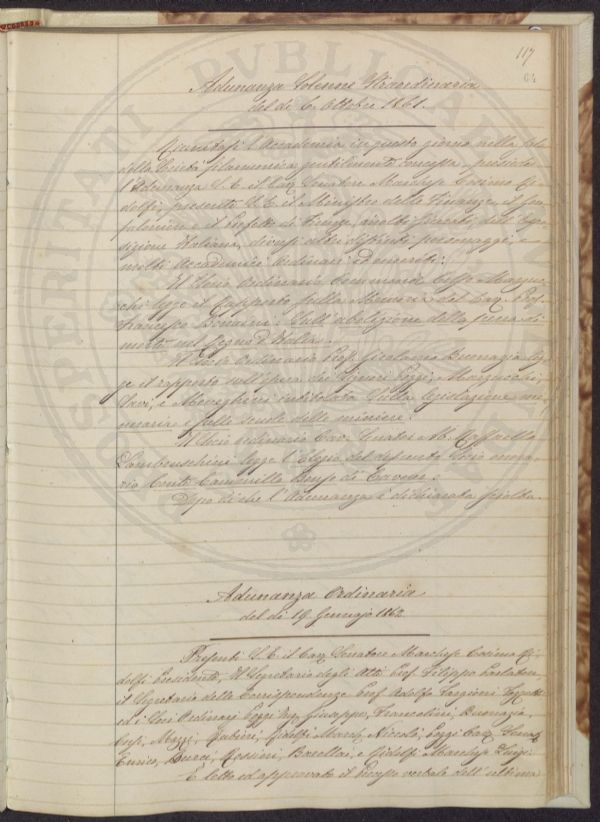 117
Adunanza Solenne Straordinaria
del dì 6 Ottobre 1861.
l'Accademia in questo giorno nella Sala
della Società filarmonica gentilmente concessa, presiede
l'Adunanza S. E. il Cav. Senatore Marchese Cosimo Ri=
dolfi, presenti S. E. il Ministro delle Finanze, il Gon=
faloniere e il Prefetto di Firenze, molti Giurati dell'Espo=
sizione Italiana, diversi altri distinti personaggi, e
molti Accademici Ordinari ed emeriti.
Il Socio Ordinario Commendator Celso Marzuc=
chi legge il rapporto sulla Memoria del Cav. Prof.
Francesco Bonaini: Sull'abolizione della pena di
morte nel Regno d'Italia.
Il Socio Ordinario Prof. Girolamo Buonazia leg=
ge il rapporto sull'opera dei Signori Poggi, Marzucchi,
Savi, e Meneghini intitolata Sulla legislazione mi=
neraria e sulle scuole delle miniere.
Il Socio Ordinario Cav. Senatore Ab. Raffaello
Lambruschini legge l'Elogio del defunto Socio onora=
rio Conte Cammillo Benso di Cavour.
Dopo di che l'Adunanza è dichiarata sciolta.
Adunanza Ordinaria
del dì 19. Gennajo 1862
Presenti S. E. il Cav. Senatore Marchese Cosimo Ri=
dolfi Presidente, il Segretario degli Atti Prof. Filippo Parlatore,
il Segretario della Corrispondenza Prof. Adolfo Targioni Tozzetti
ed i Soci Ordinarj Poggi Giuseppe, Francolini, Buonazia,
Cuppari, Mazzi, Rubieri, Ridolfi March. Niccolò, Poggi Cav. Senat.
Enrico, Ducci, Rossini, Barellai, e Ridolfi Marchese Luigi.
È letto ed approvato il Processo verbale dell'ultima